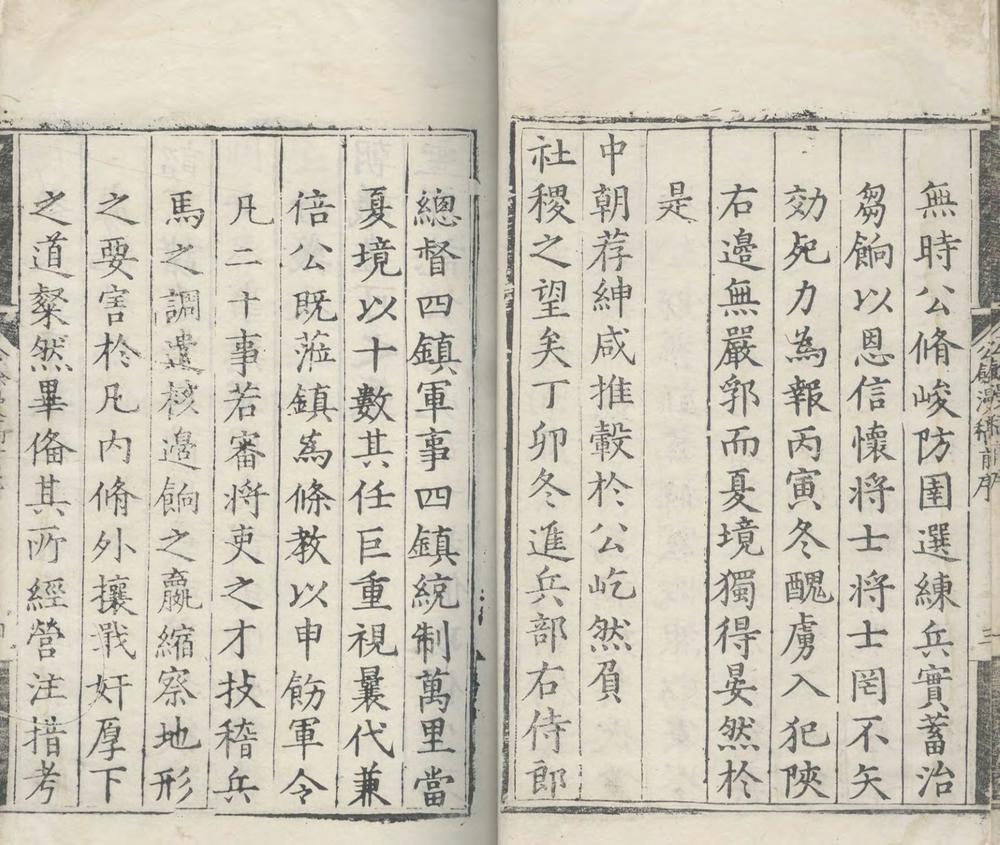 無時公脩峻防圉選練兵實蓄治
芻餉以恩信懷將士將士罔不矢
効死力為報丙寅冬醜虜入犯陝
右邊無嚴郛而夏境獨得晏然於
是
中朝荐紳咸推轂於公屹然負
社稷之望矣丁卯冬進兵部右侍郎
總督四鎮軍事四鎮統制萬里當
夏境以十數其任巨重視曩代兼
倍公既蒞鎮為條教以申飭軍令
凡二十事若審將吏之才技稽兵
馬之調遣核邊餉之嬴縮察地形
之要害於凡內脩外攘戢奸厚下
之道粲然畢俻其所經營注措考